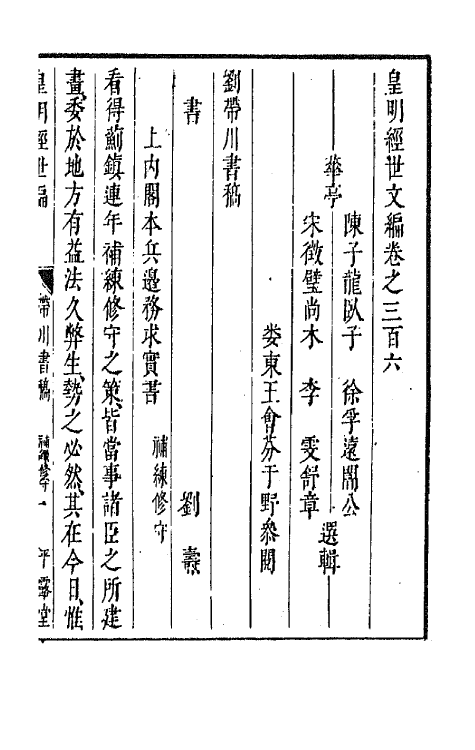 皇明經世文編卷之三百六
華亭
陳子龍臥子 徐孚遠闇公
宋徵璧尚木 李 雯舒章
選輯
婁東王會芬于野叅閱
劉帶川書稿
書 劉 燾
上內閣本兵邊務求實書 補練修守
看得薊鎮連年補練修守之策皆當事諸臣之所建
畫委於地方有益法久弊生勢之必然其在今日惟
皇明經世編 帶川書稿 補練修守 一 平露堂